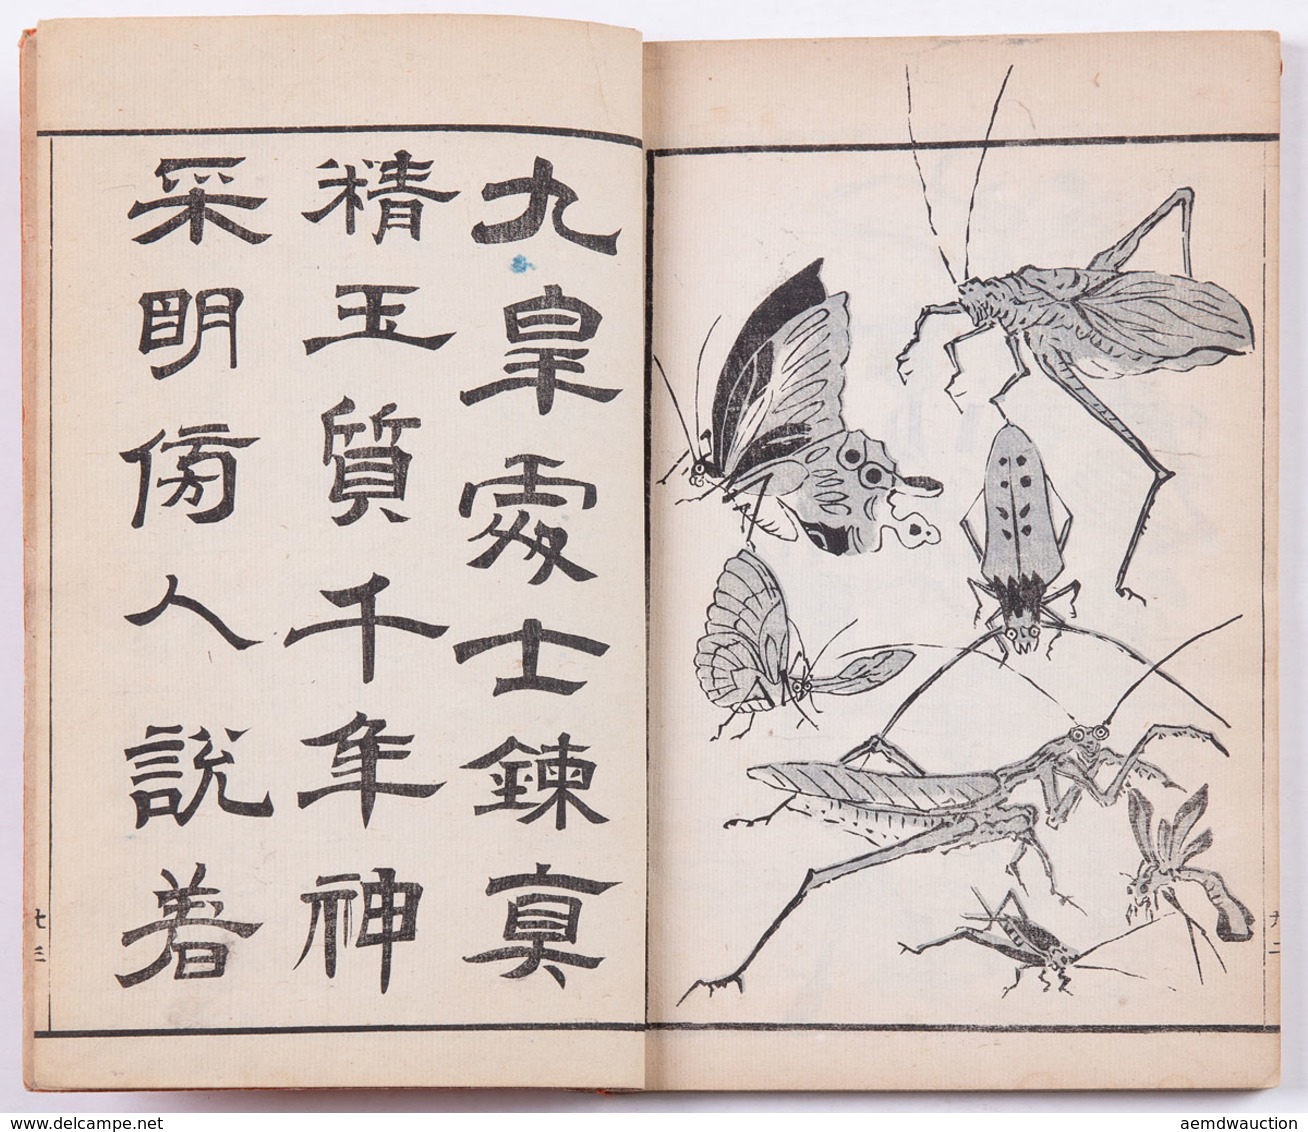 九皐處士鍊真
精玉質千年神
采明傍人說着
www.delcampe.net
aemdwauction